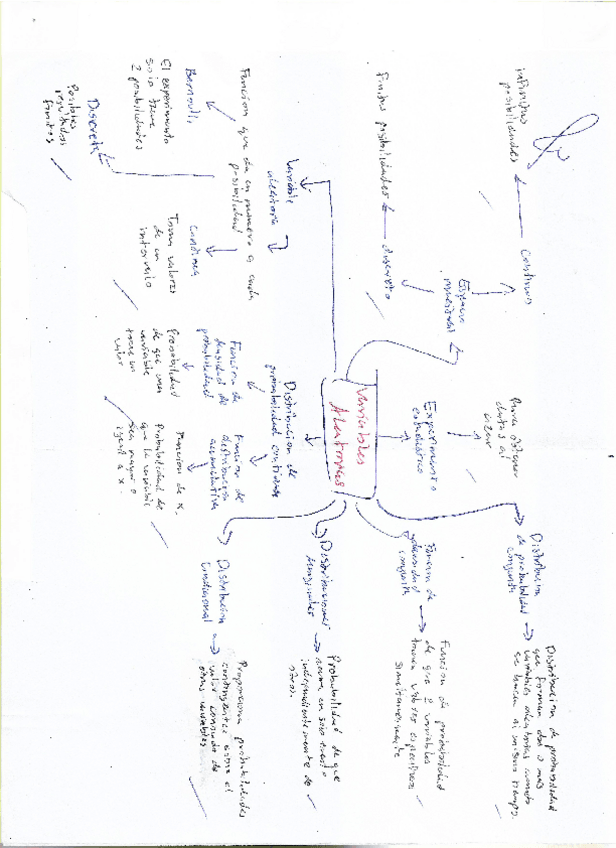 Variables
Aleatorias
Espacio
muestral
Continuo
infinitas
posibilidades
discreto
finitas posibilidades
Experimento
estadistico
Para obtener
datos al
azar
Variable
aleatoria
Funcion que da un numero a cada
posibilidad
Bernoulli
El experimento
solo tiene
2 posibilidades
Continua
Toma valores
de un
intervalo
Discreta
Posibles
resultados
finitos
Distribucion de
probabilidad continua
Funcion de
densidad de
probabilidad
Probabilidad
de que una
variable
tome un
valor
Funcion de
distribucion
acumulativa
Funcion de x,
Probabilidad de
que la variable
sea mayor o
igual a x.
Distribucion
de probabilidad
conjunta
Distribucion de probabilidad
que forman dos o mas
variables aleatorias cuando
se hacen al mismo tiempo.
Funcion de
densidad
conjunta
Funcion de probabilidad
de que 2 variables
tomen valores especificos
Distribuciones
marginales
Probabilidad de que
ocurra un solo evento
independientemente de
otros.
Distribucion
Condicional
Proporciona probabilidades
contingentes sobre el
valor conocido de
otras variables